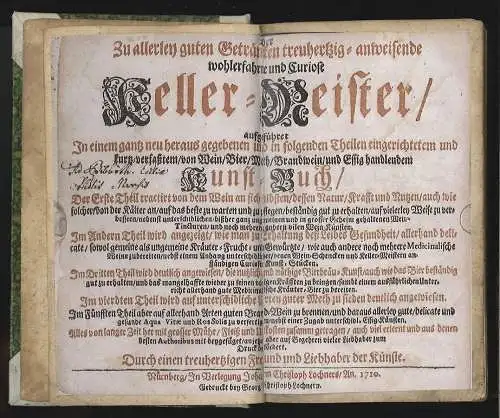 Der
Zu allerley guten Getränken treuhertzig-anweisende
wohlerfahrne und Curiose
Keller-Meister/
aufgeführet
In einem gantz neu heraus gegebenen und in folgenden Theilen eingerichtetem und
kurtz verfaßtem/von Wein/Bier/Meth/Brandwein/und Essig handlendem
Kunst-Buch/
Der Erste Theil tractirt von dem Wein an sich selbsten/dessen Natur/Krafft und Nutzen/auch wie
solcher/von der Kälter an/auf das beste zu warten und zu pflegen/beständig gut zu erhalten/auf vielerley Weise zu ver-
bessern/nebenst unterschiedlichen/bißher gantz ungemeinen und in grosser Geheim gehaltenen Wein-
Tincturen/und noch mehrern andern vilen Wein Künsten.
Im Andern Theil wird angezeigt/wie man zu Erhaltung deß Leibes Gesundheit/allerhand deli-
cate/sowol gemeine als ungemeine Kräuter-Früchte und Gewürtz/wie auch andere noch mehrere Medicinalische
Weine zubereiten/nebst einem Anhang unterschiedlicher denen Wein-Schencken und Keller-Meistern an-
ständigen Curiosen Kunst-Stücken.
Im Dritten Theil wird deutlich angewiesen/die nutzlich und nöthige Bierbräu-Kunst/auch wie das Bier beständig
gut zu erhalten/und das mangelhaffte wieder zu seinen vorigen Kräfften zu bringen/sambt einem ausführlichen Unter-
richt allerhand gute Medicinalische Kräuter-Bier zu bereiten.
Im vierdten Theil wird auf unterschidliche Arten guter Meth zu sieden deutlich angewiesen.
Im Fünfften Theil aber auf allerhand Arten guten Brandwein zu brennen/und daraus allerley gute/delicate und
gesunde Aqua Vitæ und Ros Solis zu verfertigen/nebst einer Zugab unterschidl. Essig-Künsten.
Alles von langer Zeit her mit grosser Mühe/Fleiß und Unkosten zusamm getragen/auch viel erlernt und aus denen
besten Authoribus mit beygefüget/anjetzo aber auf Begehren vieler Liebhaber zum
Druck befördert.
Durch einen treuhertzigen Freund und Liebhaber der Künste.
Nürnberg/In Verlegung Johann Christoph Lochners/An. 1710.
Gedruckt bey Georg Christoph Lochnern.